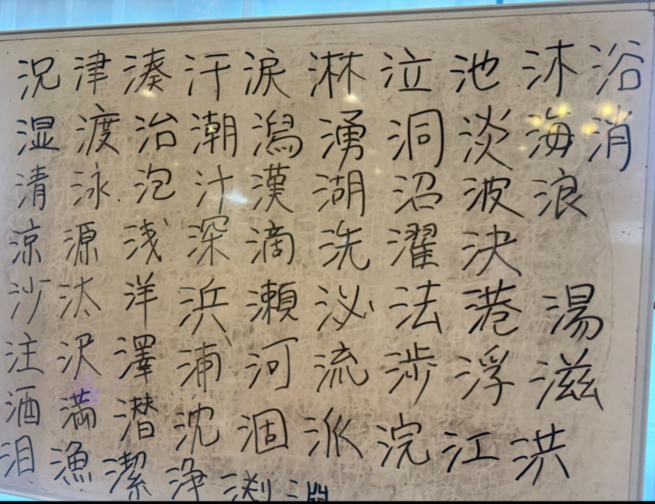 況津湊汗涙淋泣池沐浴
湿渡治潮潟湧洞淡海消
清泳泡汁漢湖沼波浪
涼源浅深滴洗濯決
沙汰洋浜瀬泌法港湯
注沢澤浦河流渉浮滋
酒満潜沈涸派浣江洪
泪漁潔浄渕淵